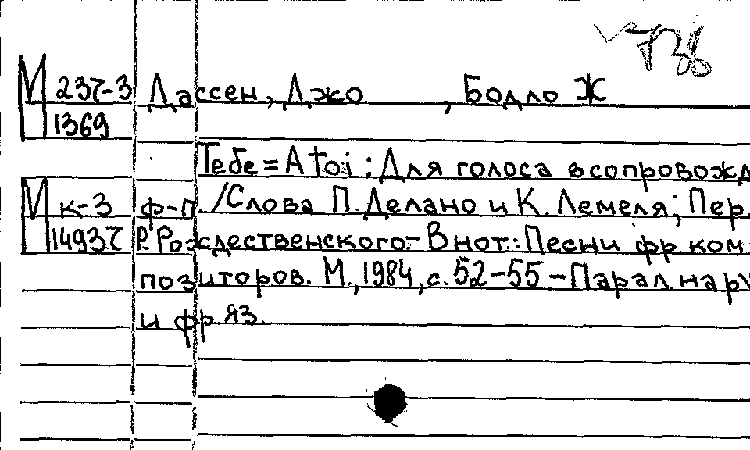 М 237-3 Дассен, Джо , Бодло Ж
1369
Тебе = A toi : Для голоса в сопровожд
М к-3 ф-п. /Слова П. Делано и К. Лемеля; Пер.
14937 Р. Рождественского.- В нот.: Песни фр ком
позиторов. М., 1984, с. 52-55 - Парал. на ру
и фр яз.